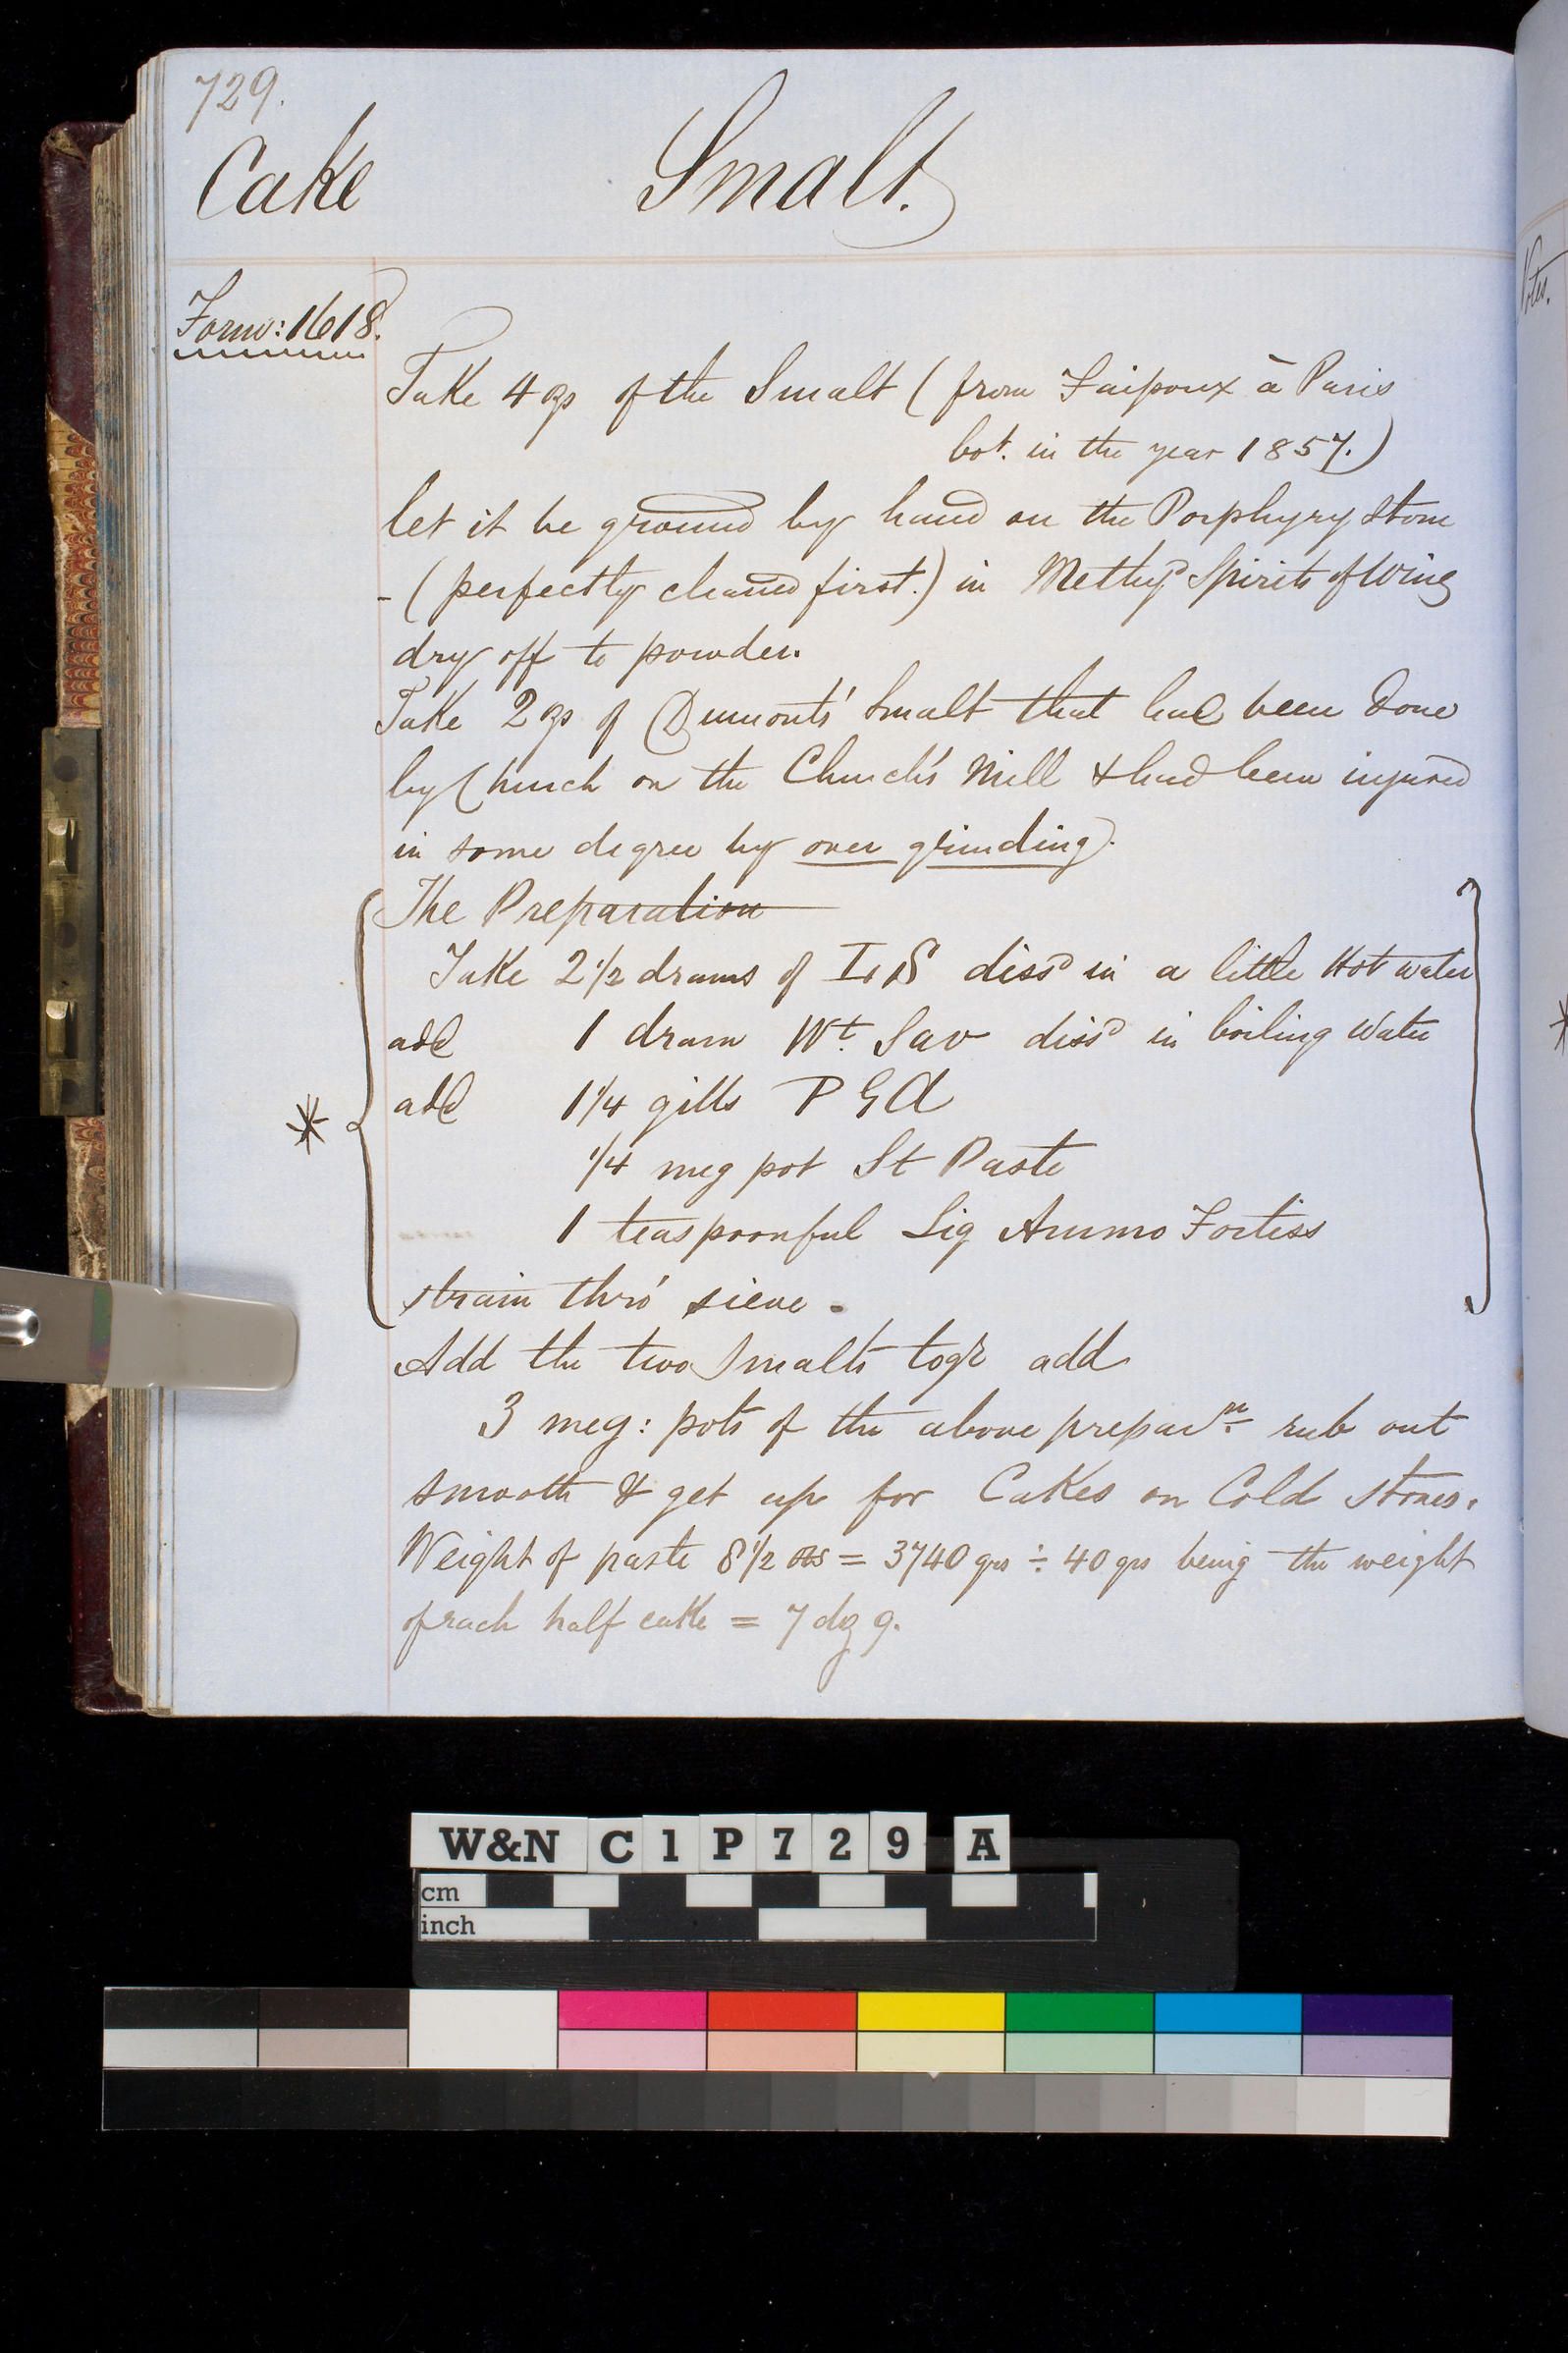 729.
Cake Smalt.
Form: 1618.
Take 4 ozs of the Smalt ( from à Paris
bot. in the year 1857.)
let it be ground by hand on the Porphyry Stone
- ( perfectly cleaned first.) in Methyd Spirits of Wine
dry off to powder.
Take 2 ozs of Dumonts' Smalt that had been done
by Church on the Church's Mill & had been injured
in some degree by over grinding.
The Preparation
Take 2 1/2 drams of I,S dissd in a little Hot water
add 1 dram Wt. Sav dissd in boiling Water
* add 1 1/4 gills P G A
1/4 meg pot St Paste
1 teaspoonful Liq Ammo Fortiss
strain thro' sieve.
Add the two Smalts togr add
3 meg: pots of the above preparn. rub out
smooth & get up for Cakes on Cold Stones.
Weight of paste 8 1/2 ozs = 3740 grs ÷ 40 grs being the weight
of each half cake = 7 dz 9.
Notes.
*
W&N C 1 P 7 2 9 A
cm
inch